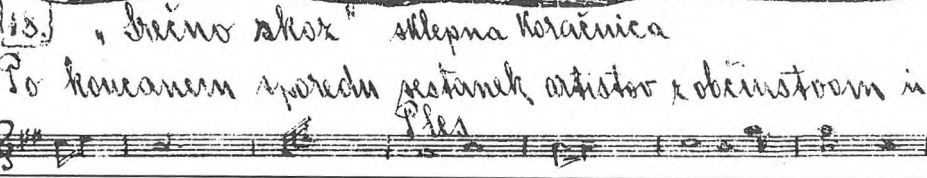 13. „Srečno skoz" sklepna koračnica
Po koncanem sporedu sestanek artistov z občinstvom in
Ples